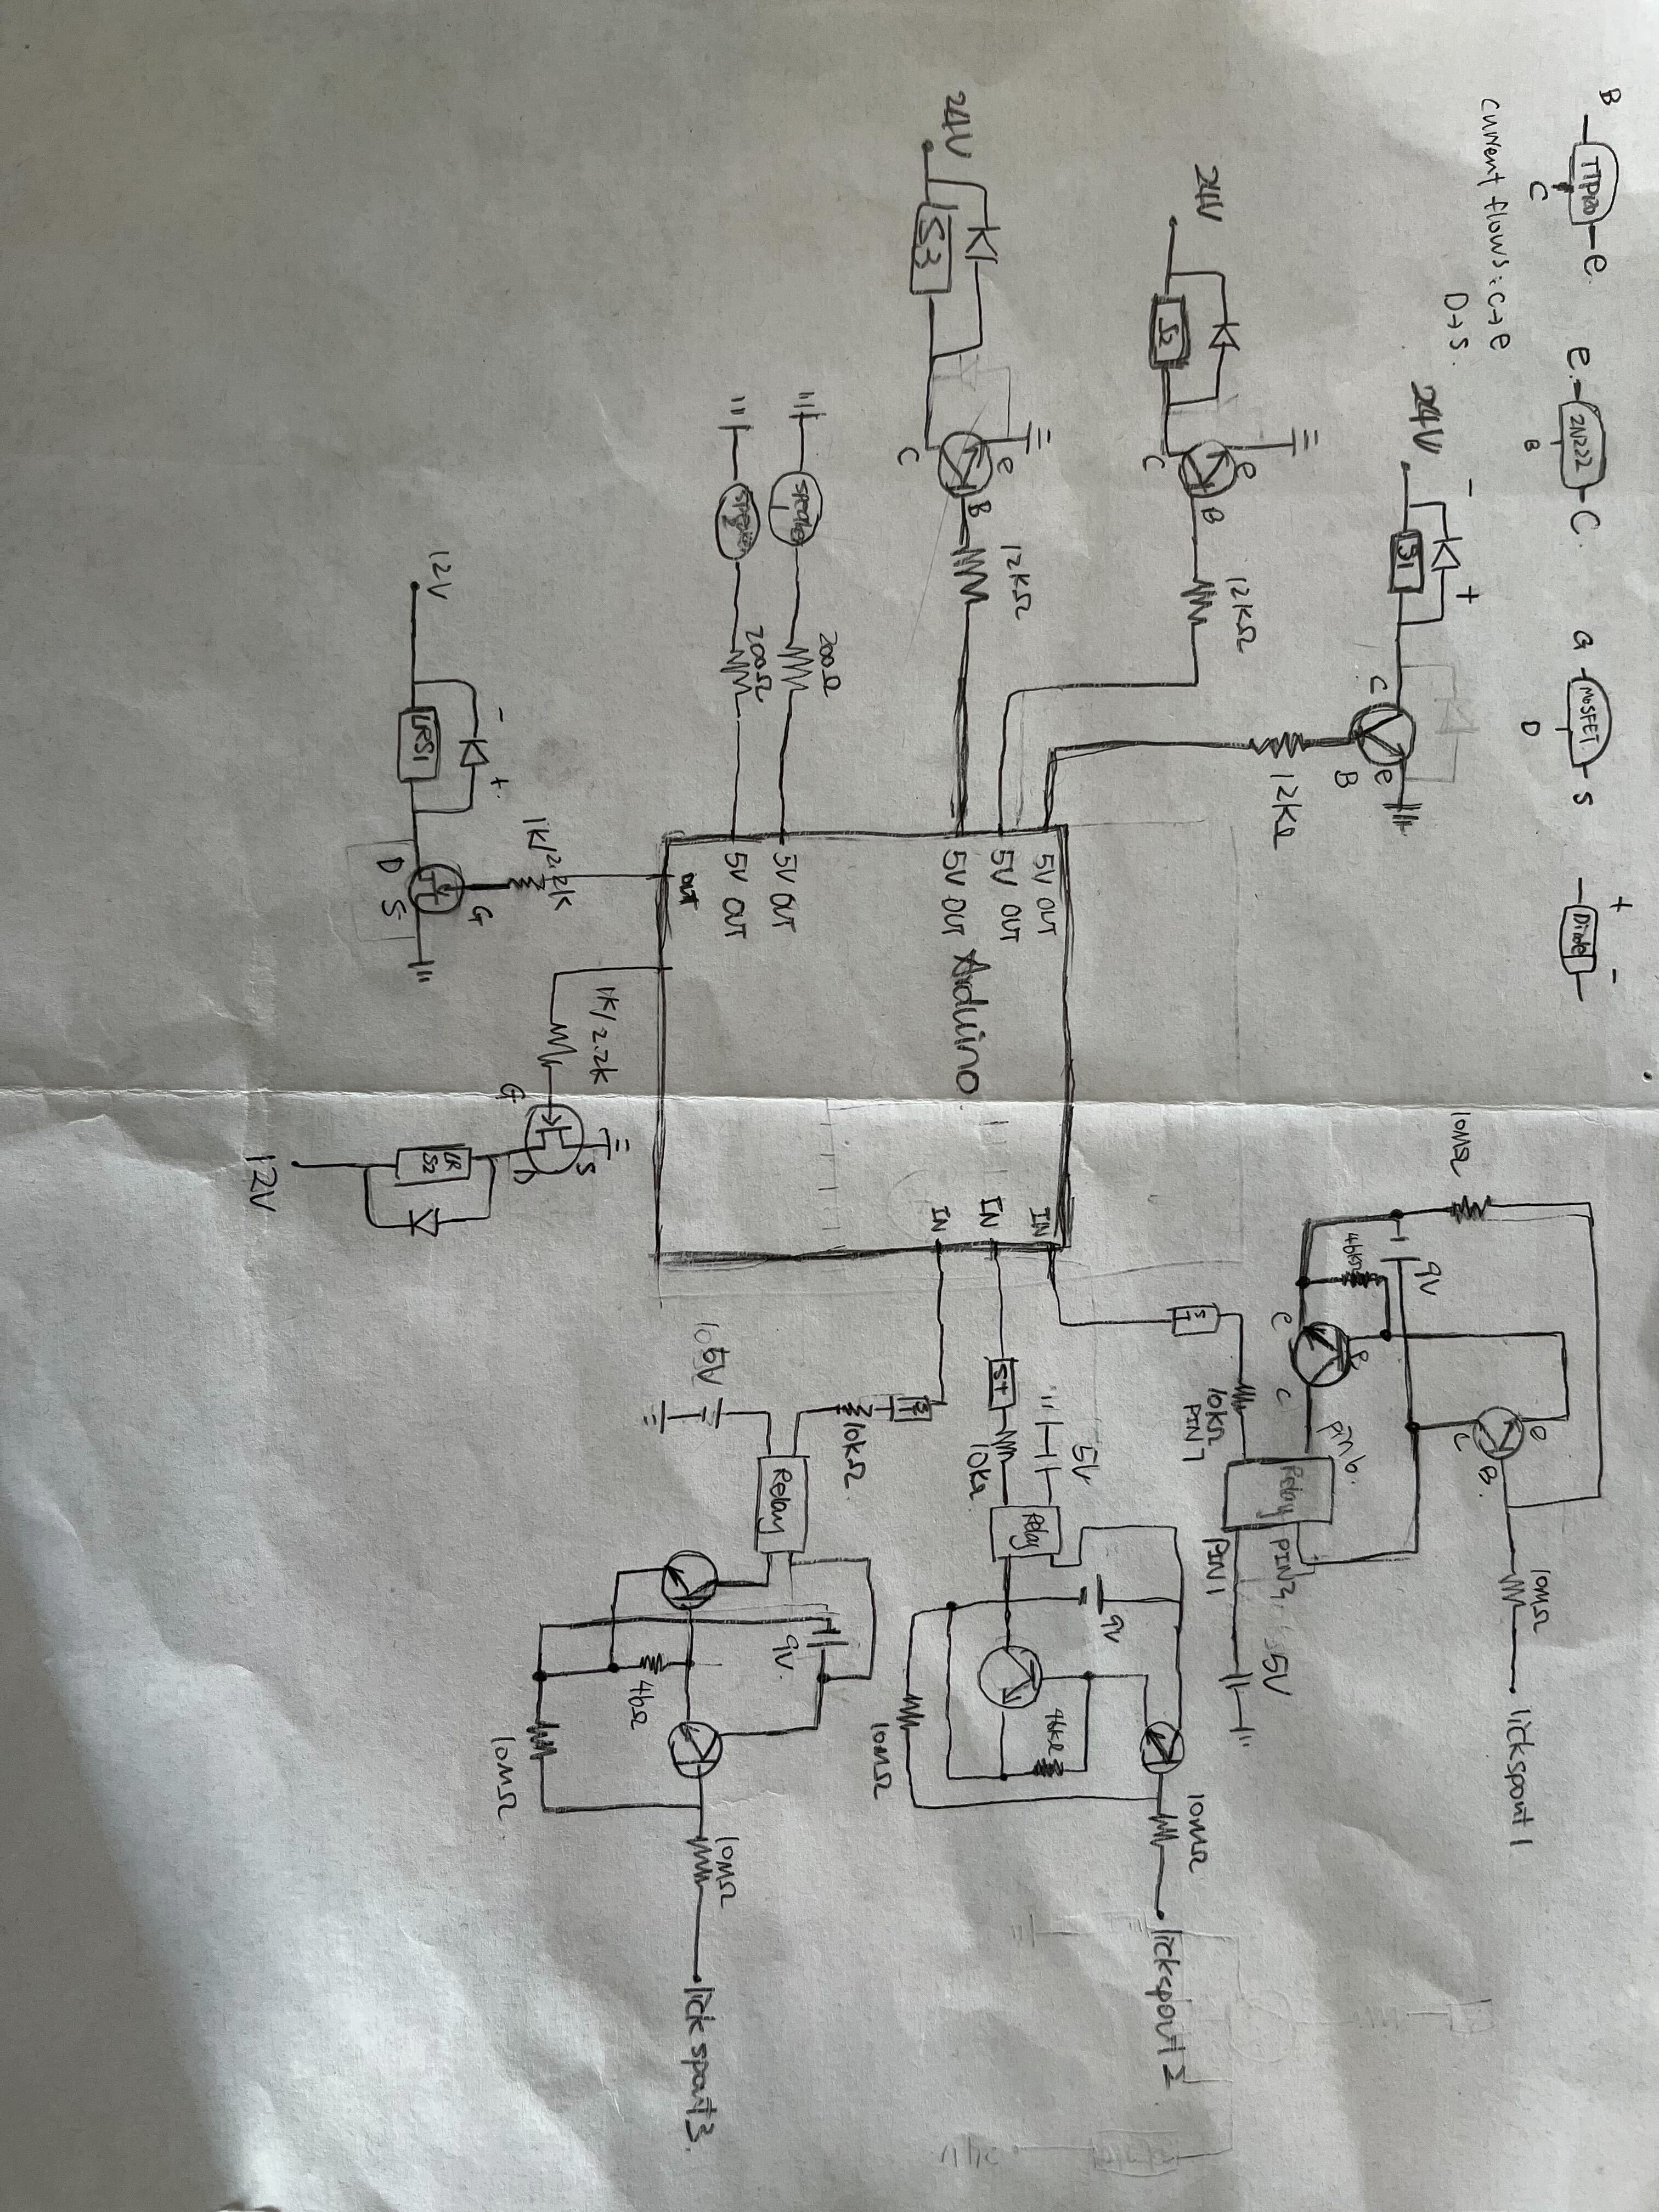 B TTP120 e
C
e 2N222 C
B
G MOSFET S
D
+ -
Diode
Current flows: C→e
D→S.
24V - + S1
C e
B
12KΩ
24V S2
e B
C
12KΩ
24V S3
e B
C
12KΩ
speaker 1 200Ω
speaker 2 200Ω
5V OUT
5V OUT
5V OUT
Arduino
5V OUT
5V OUT
OUT
IN
IN
IN
1K/2.2K
G
- +
12V LRS1
D S
1K/2.2K
S
G D
LR S2
12V
10MΩ lickspout1
e
B.
C
10MΩ
9V
46KΩ
B
e C
pin6.
Relay
PIN3
5V
PIN1
10KΩ
PIN7
ST
10MΩ
lickspout2
9V
5V
Relay
46KΩ
ST
10KΩ
10MΩ
ST
10KΩ
Relay
9V.
5V
10MΩ
lick spout3.
46Ω
10MΩ